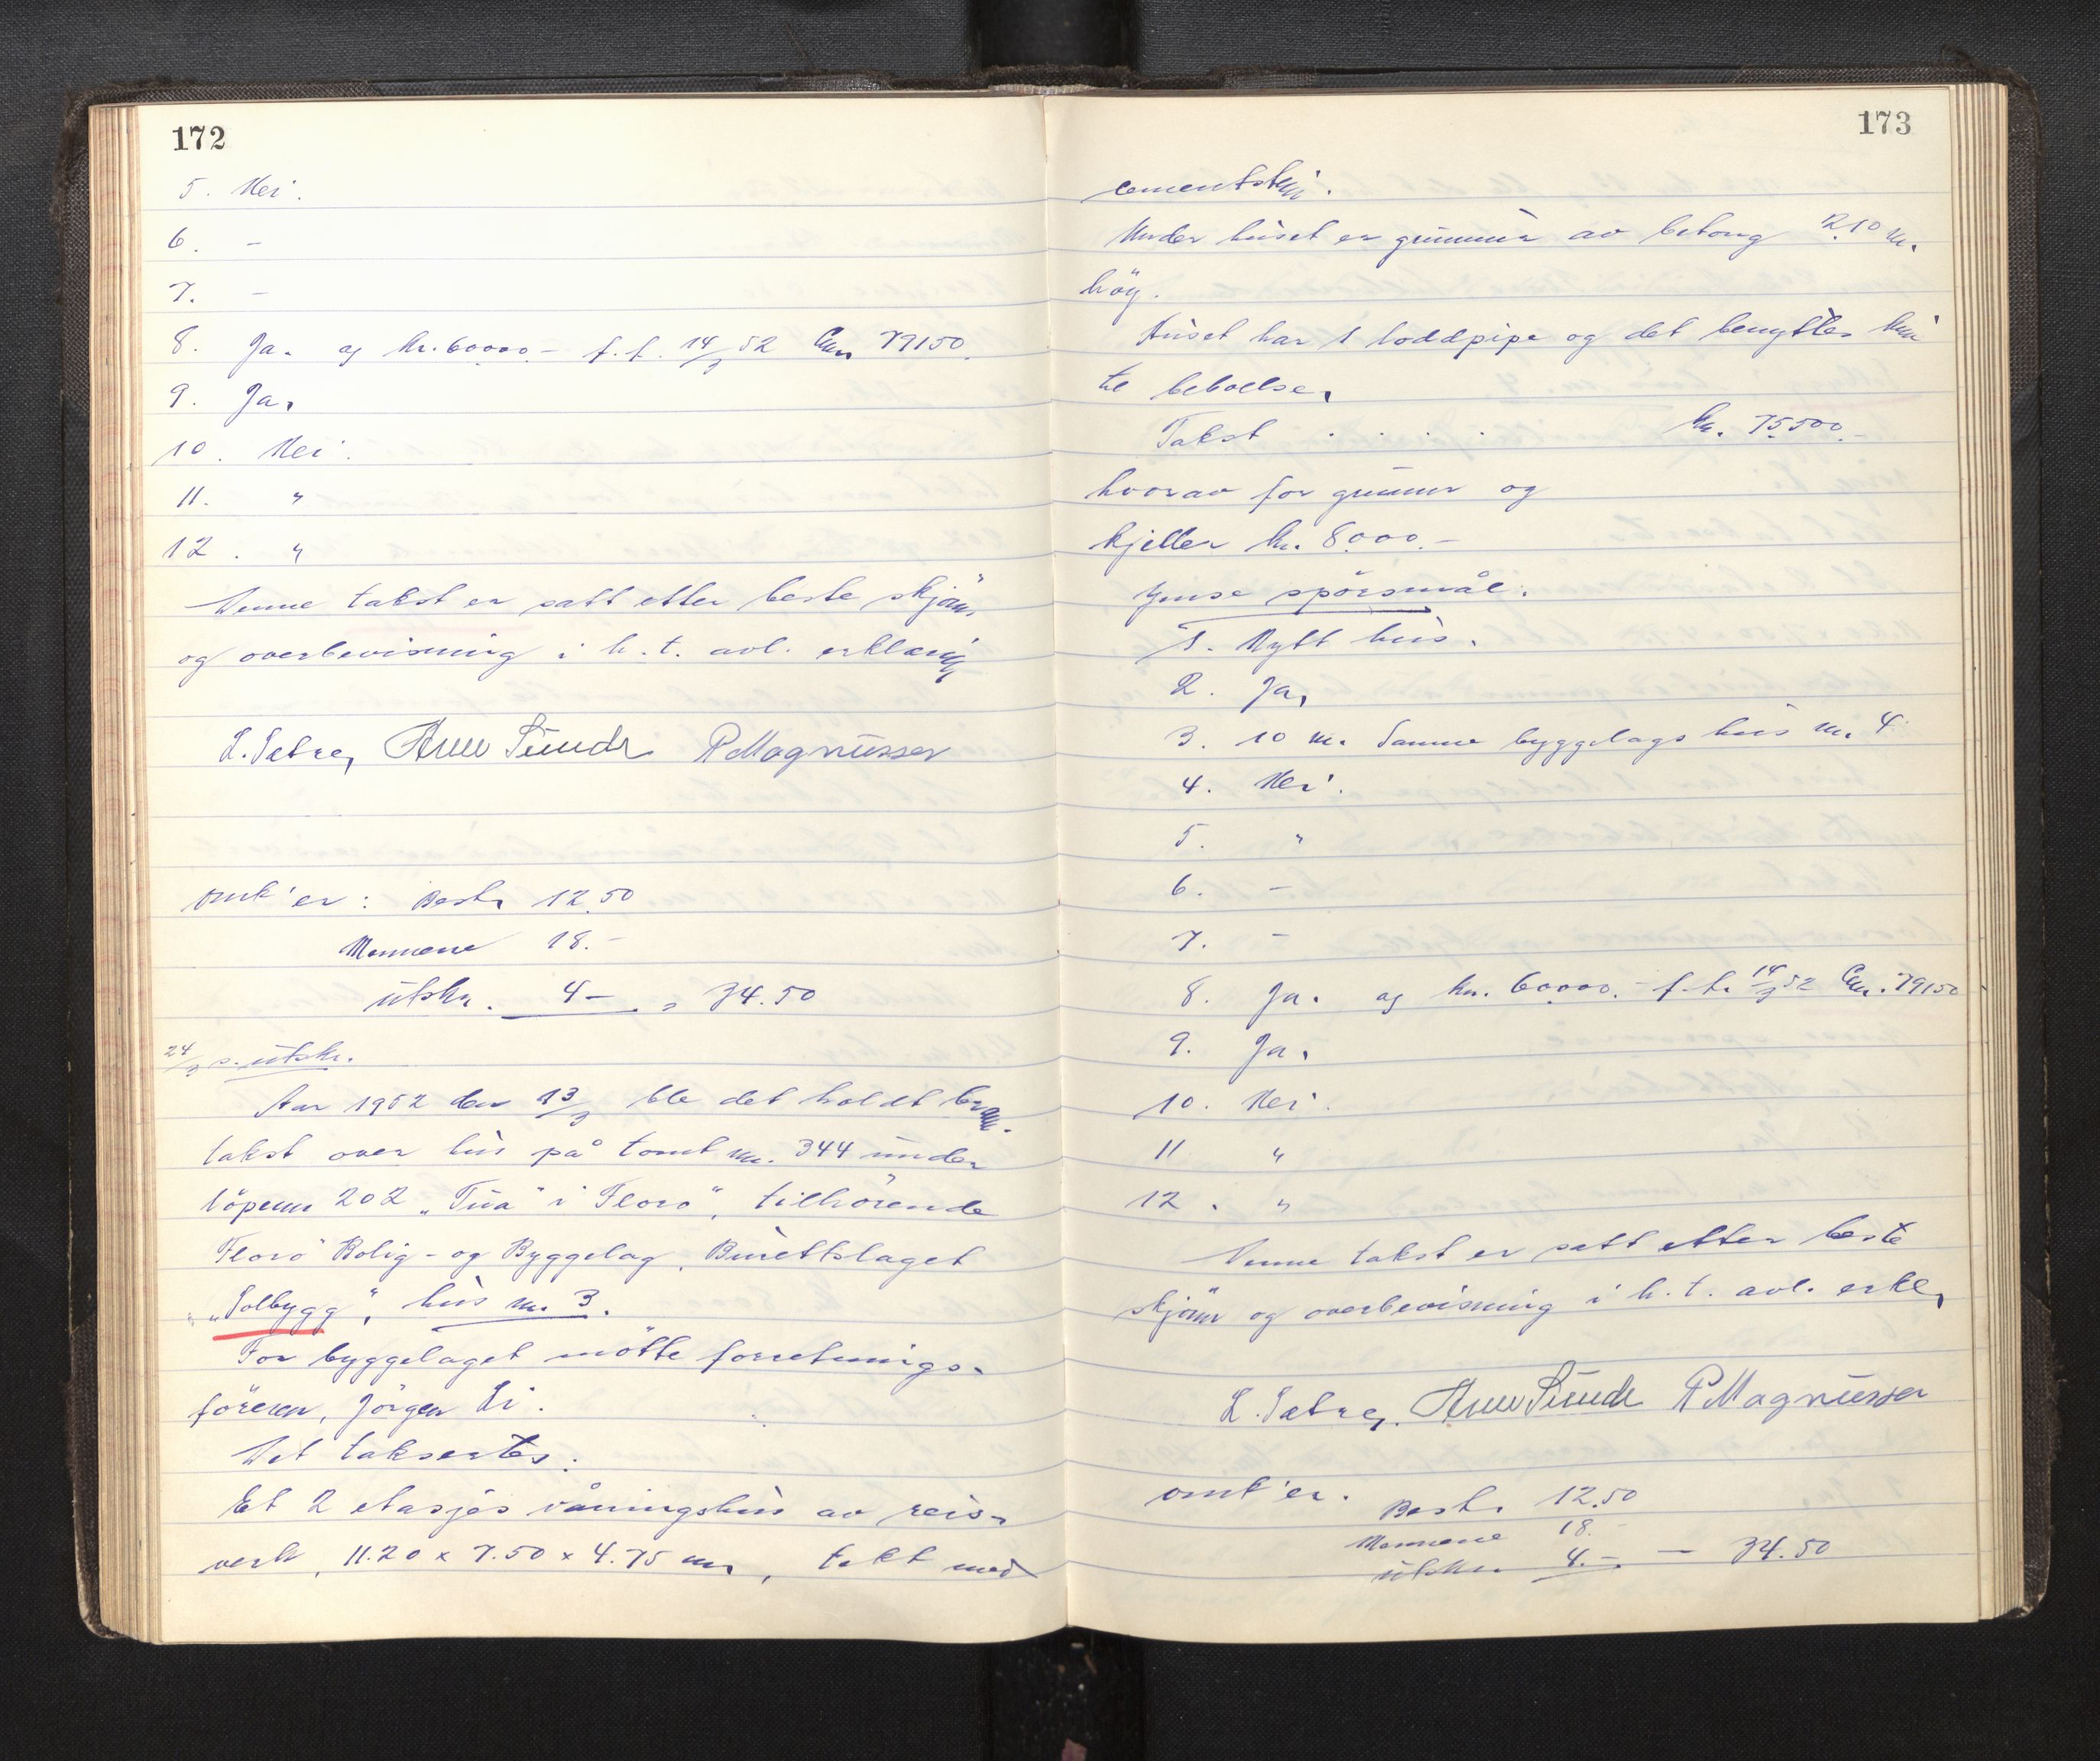 172
5. Nei.
6. –
7. –
8. Ja. og kr. 60000.– f. f. 14/3 52 79150.
9. Ja.
10. Nei.
11. "
12. "
Denne takst er satt etter beste skjönn
og overbevisning i h. t. avl. erklæring
L. Sætre, Arne Sunde R Magnussen
omk'er: Best. 12.50
Mennene 18.–
utskr. 4– = 34.50
24/3 s. utskr.
Aar 1952 den 13/3 ble det holdt brann-
takst over hus på tomt nr. 344 under
löpenr 202 „Tua" i Florö", tilhörende
Florö Bolig- og Byggelag, Burettslaget
„Solbygg", hus nr. 3.
For byggelaget mötte forretnings-
föreren, Jörgen Li.
Det taksertes:
Et 2 etasjes våningshus av reis-
verk, 11.20 x 7.50 x 4.75 m, tekt med
173
cementskin.
Under huset er grunnur av betong 2.10 m.
höy.
Huset har 1 loddpipe og det benyttes kun
til beboelse.
Takst . . . . kr. 75500.–
hvorav for grunnur og
kjeller kr. 8000.–
Ymse spörsmål:
1. Nytt hus.
2. Ja,
3. 10 m. Samme byggelags hus nr. 4
4. Nei.
5. "
6. –
7. –
8. Ja. og kr. 60000.– f. f. 14/3 52 79150
9. Ja.
10. Nei.
11 "
12. "
Denne takst er satt etter beste
skjönn og overbevisning i h. t. avl. erkl.
L. Sætre, Arne Sunde R Magnussen
omk'er. Best. 12.50
Mennene 18.–
utskr. 4.– — 34.50